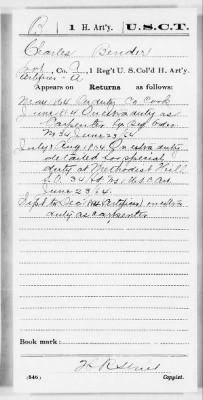 B | 1 H. Art'y. | U.S.C.T.
Charles Bender
Co. 1 Reg't U. S. Col'd H. Art'y.
Artificer A
Appears on Returns as follows:
May 1864 On duty Co. Cook
June 1864 On extra duty as
Carpenter by Reg. Order
No 34 June 23 64
July & Aug 1864 On extra duty
detailed for special
duty at Methodist Hill
S.O. 34 1 USC Art
June 23/64.
Sept to Dec 1864 (Artificer) on extra
duty as carpenter
Book mark:
(546)
Copyist.